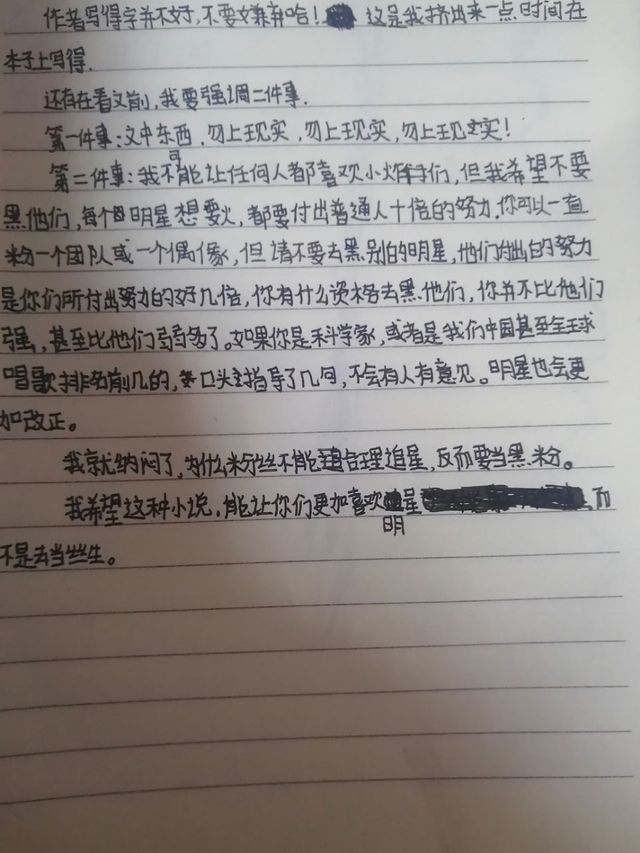 作者写得字并不好,不要嫌弃哈! 这是我挤出来一点时间在
本子上写得.
还有在看文前,我要强调二件事.
第一件事:文中东西,勿上现实,勿上现实,勿上现实!
第二件事:我不可能让任何人都喜欢小炸们,但我希望不要
黑他们,每个明星想要火,都要付出普通人十倍的努力.你可以一直
粉一个团队或一个偶像,但请不要去黑别的明星,他们付出的努力
是你们所付出努力的好几倍,你有什么资格去黑他们,你并不比他们
强,甚至比他们弱多了。如果你是科学家,或者是我们中国甚至全球
唱歌排名前几的,口头指导了几句,不会有人有意见。明星也会更
加改正。
我就纳闷了,为什么粉丝不能合理追星,反而要当黑粉。
我希望这种小说,能让你们更加喜欢明星,而
不是去当丝生。